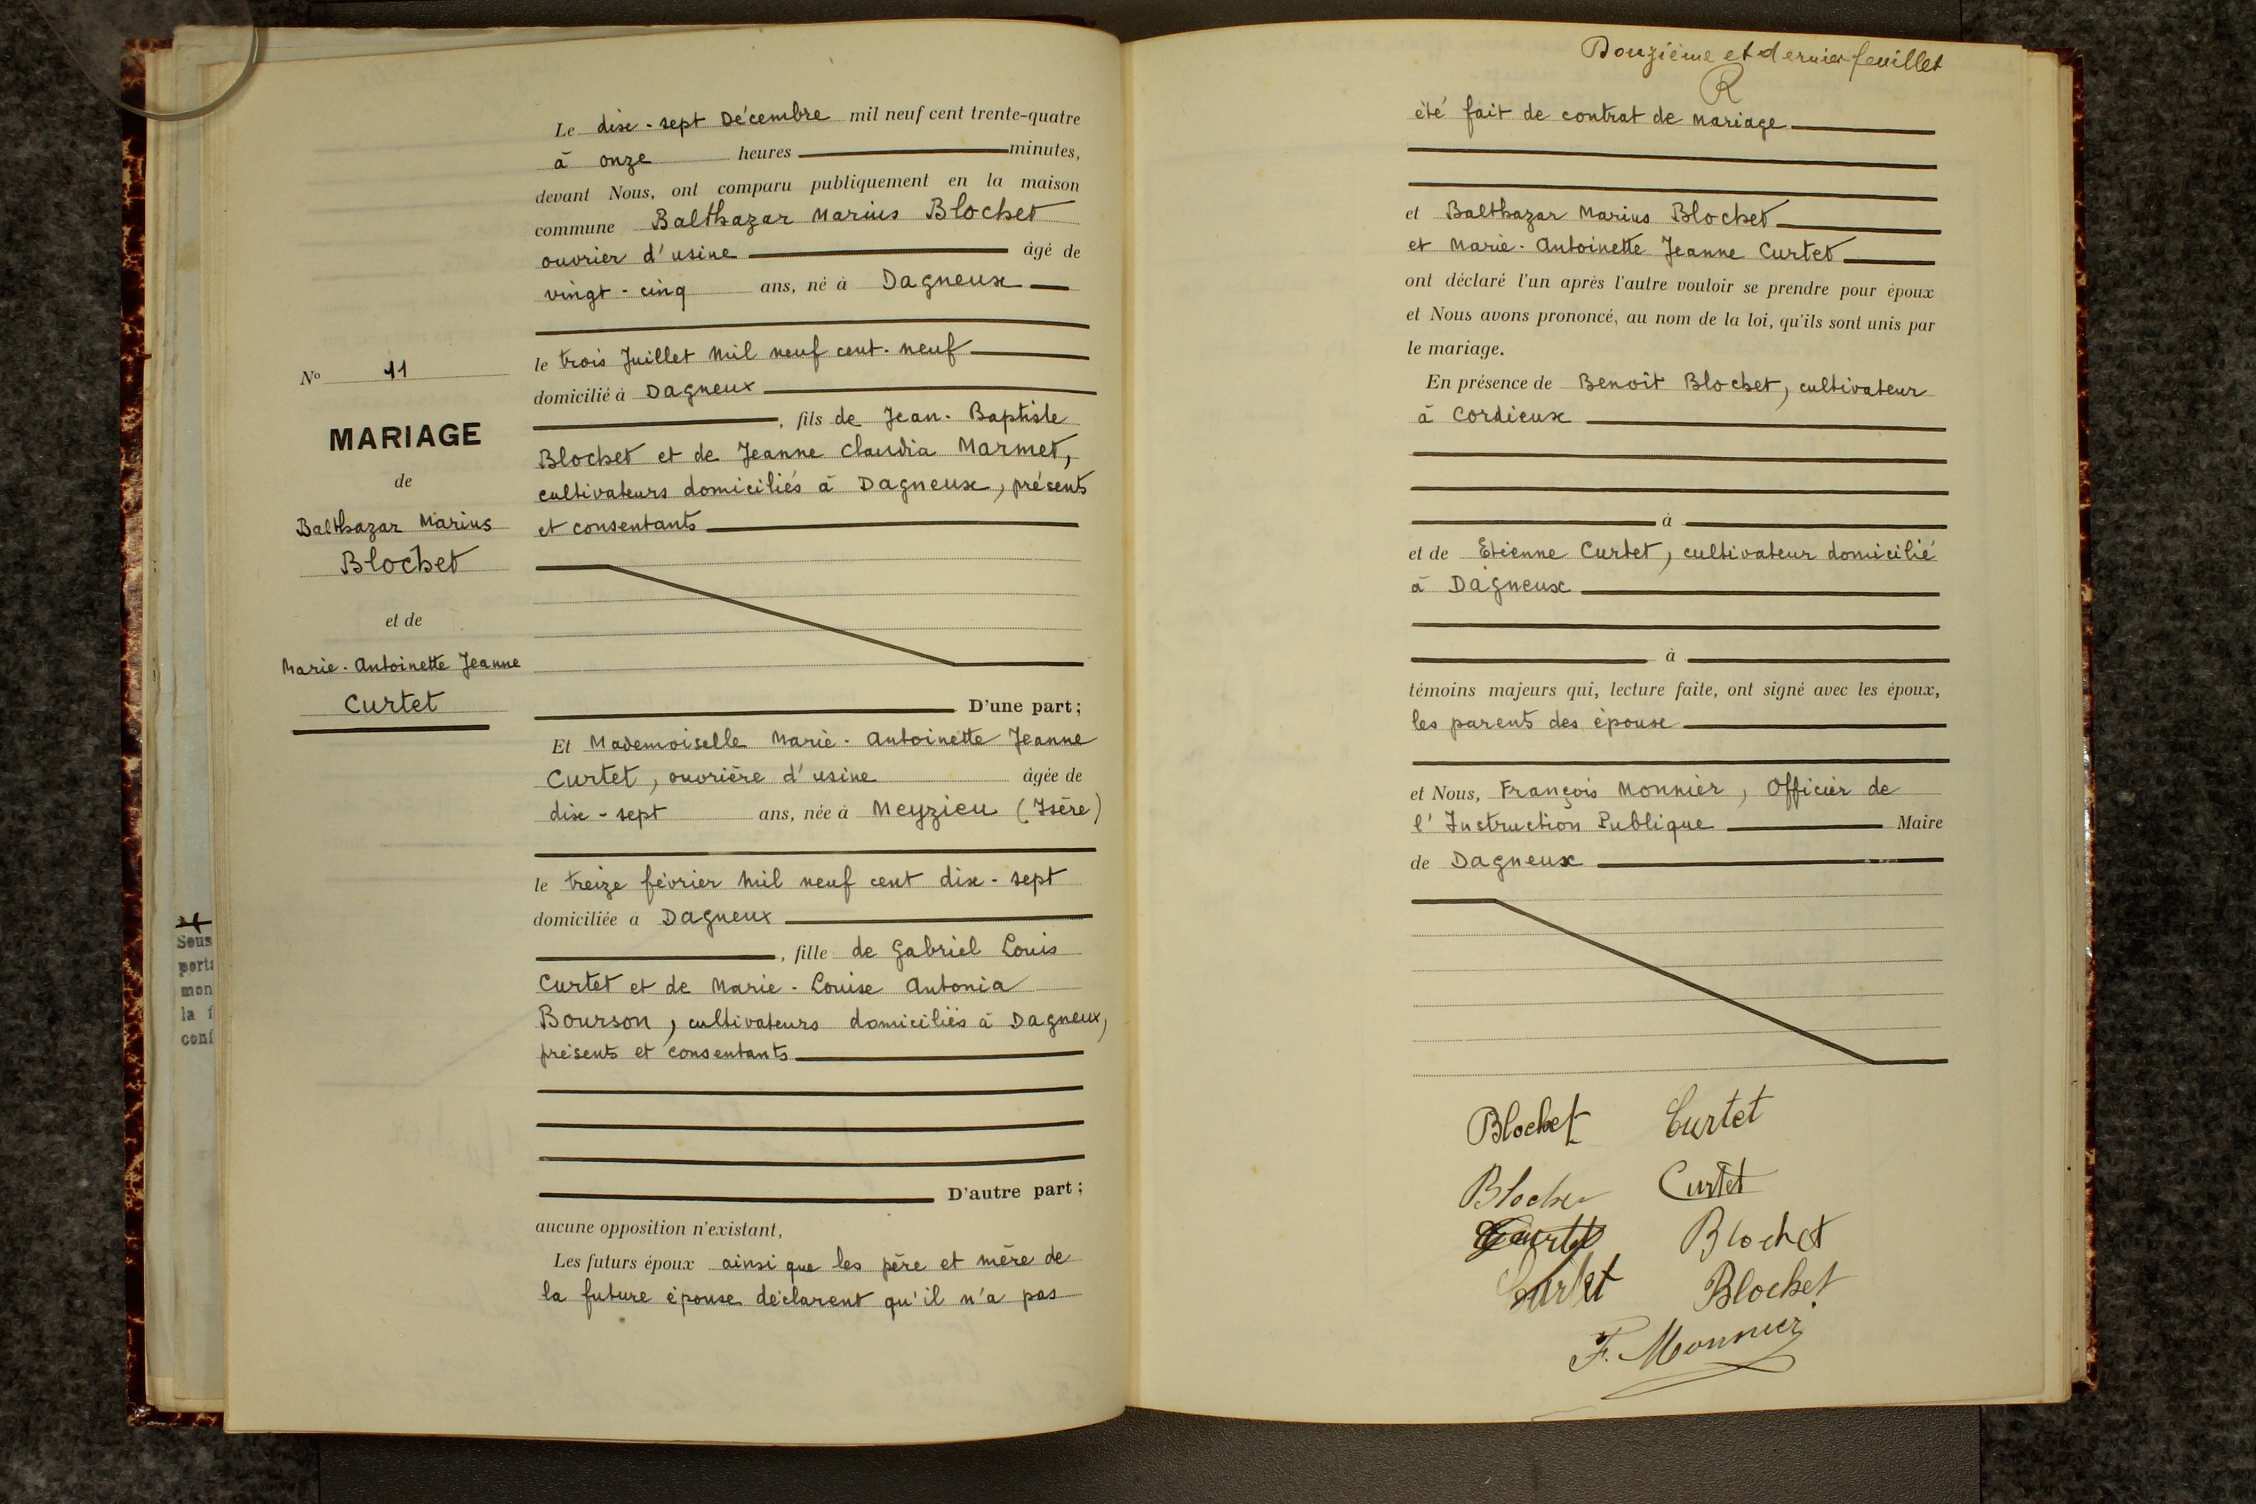 N° 11
MARIAGE
de
Balthazar Marius
Blochet
et de
Marie-Antoinette Jeanne
Curtet
Sous
mon
Le dix-sept Décembre mil neuf cent trente-quatre
à onze heures minutes,
devant Nous, ont comparu publiquement en la maison
commune Balthazar Marius Blochet
ouvrier d'usine âgé de
vingt-cinq ans, né à Dagneux
le trois Juillet mil neuf cent-neuf
domicilié à Dagneux
, fils de Jean-Baptiste
Blochet et de Jeanne Claudia Marmet,
cultivateurs domiciliés à Dagneux, présents
et consentants
D'une part;
Et Mademoiselle Marie-Antoinette Jeanne
Curtet, ouvrière d'usine âgée de
dix-sept ans, née à Meyzieu (Isère)
le treize février mil neuf cent dix-sept
domiciliée a Dagneux
, fille de Gabriel Louis
Curtet et de Marie-Louise Antonia
Bourson, cultivateurs domiciliés à Dagneux,
présents et consentants
D'autre part;
aucune opposition n'existant,
Les futurs époux ainsi que les père et mère de
la future épouse déclarent qu'il n'a pas
Douzième et dernier feuillet
R
été fait de contrat de mariage
et Balthazar Marius Blochet
et Marie-Antoinette Jeanne Curtet
ont déclaré l'un après l'autre vouloir se prendre pour époux
et Nous avons prononcé, au nom de la loi, qu'ils sont unis par
le mariage.
En présence de Benoît Blochet, cultivateur
à Cordieux
à
et de Etienne Curtet, cultivateur domicilié
à Dagneux
à
témoins majeurs qui, lecture faite, ont signé avec les époux,
les parents des époux
et Nous, François Monnier, Officier de
l'Instruction Publique Maire
de Dagneux
Blochet Curtet
Blochet Curtet
Blochet
Curtet Blochet
F. Monnier